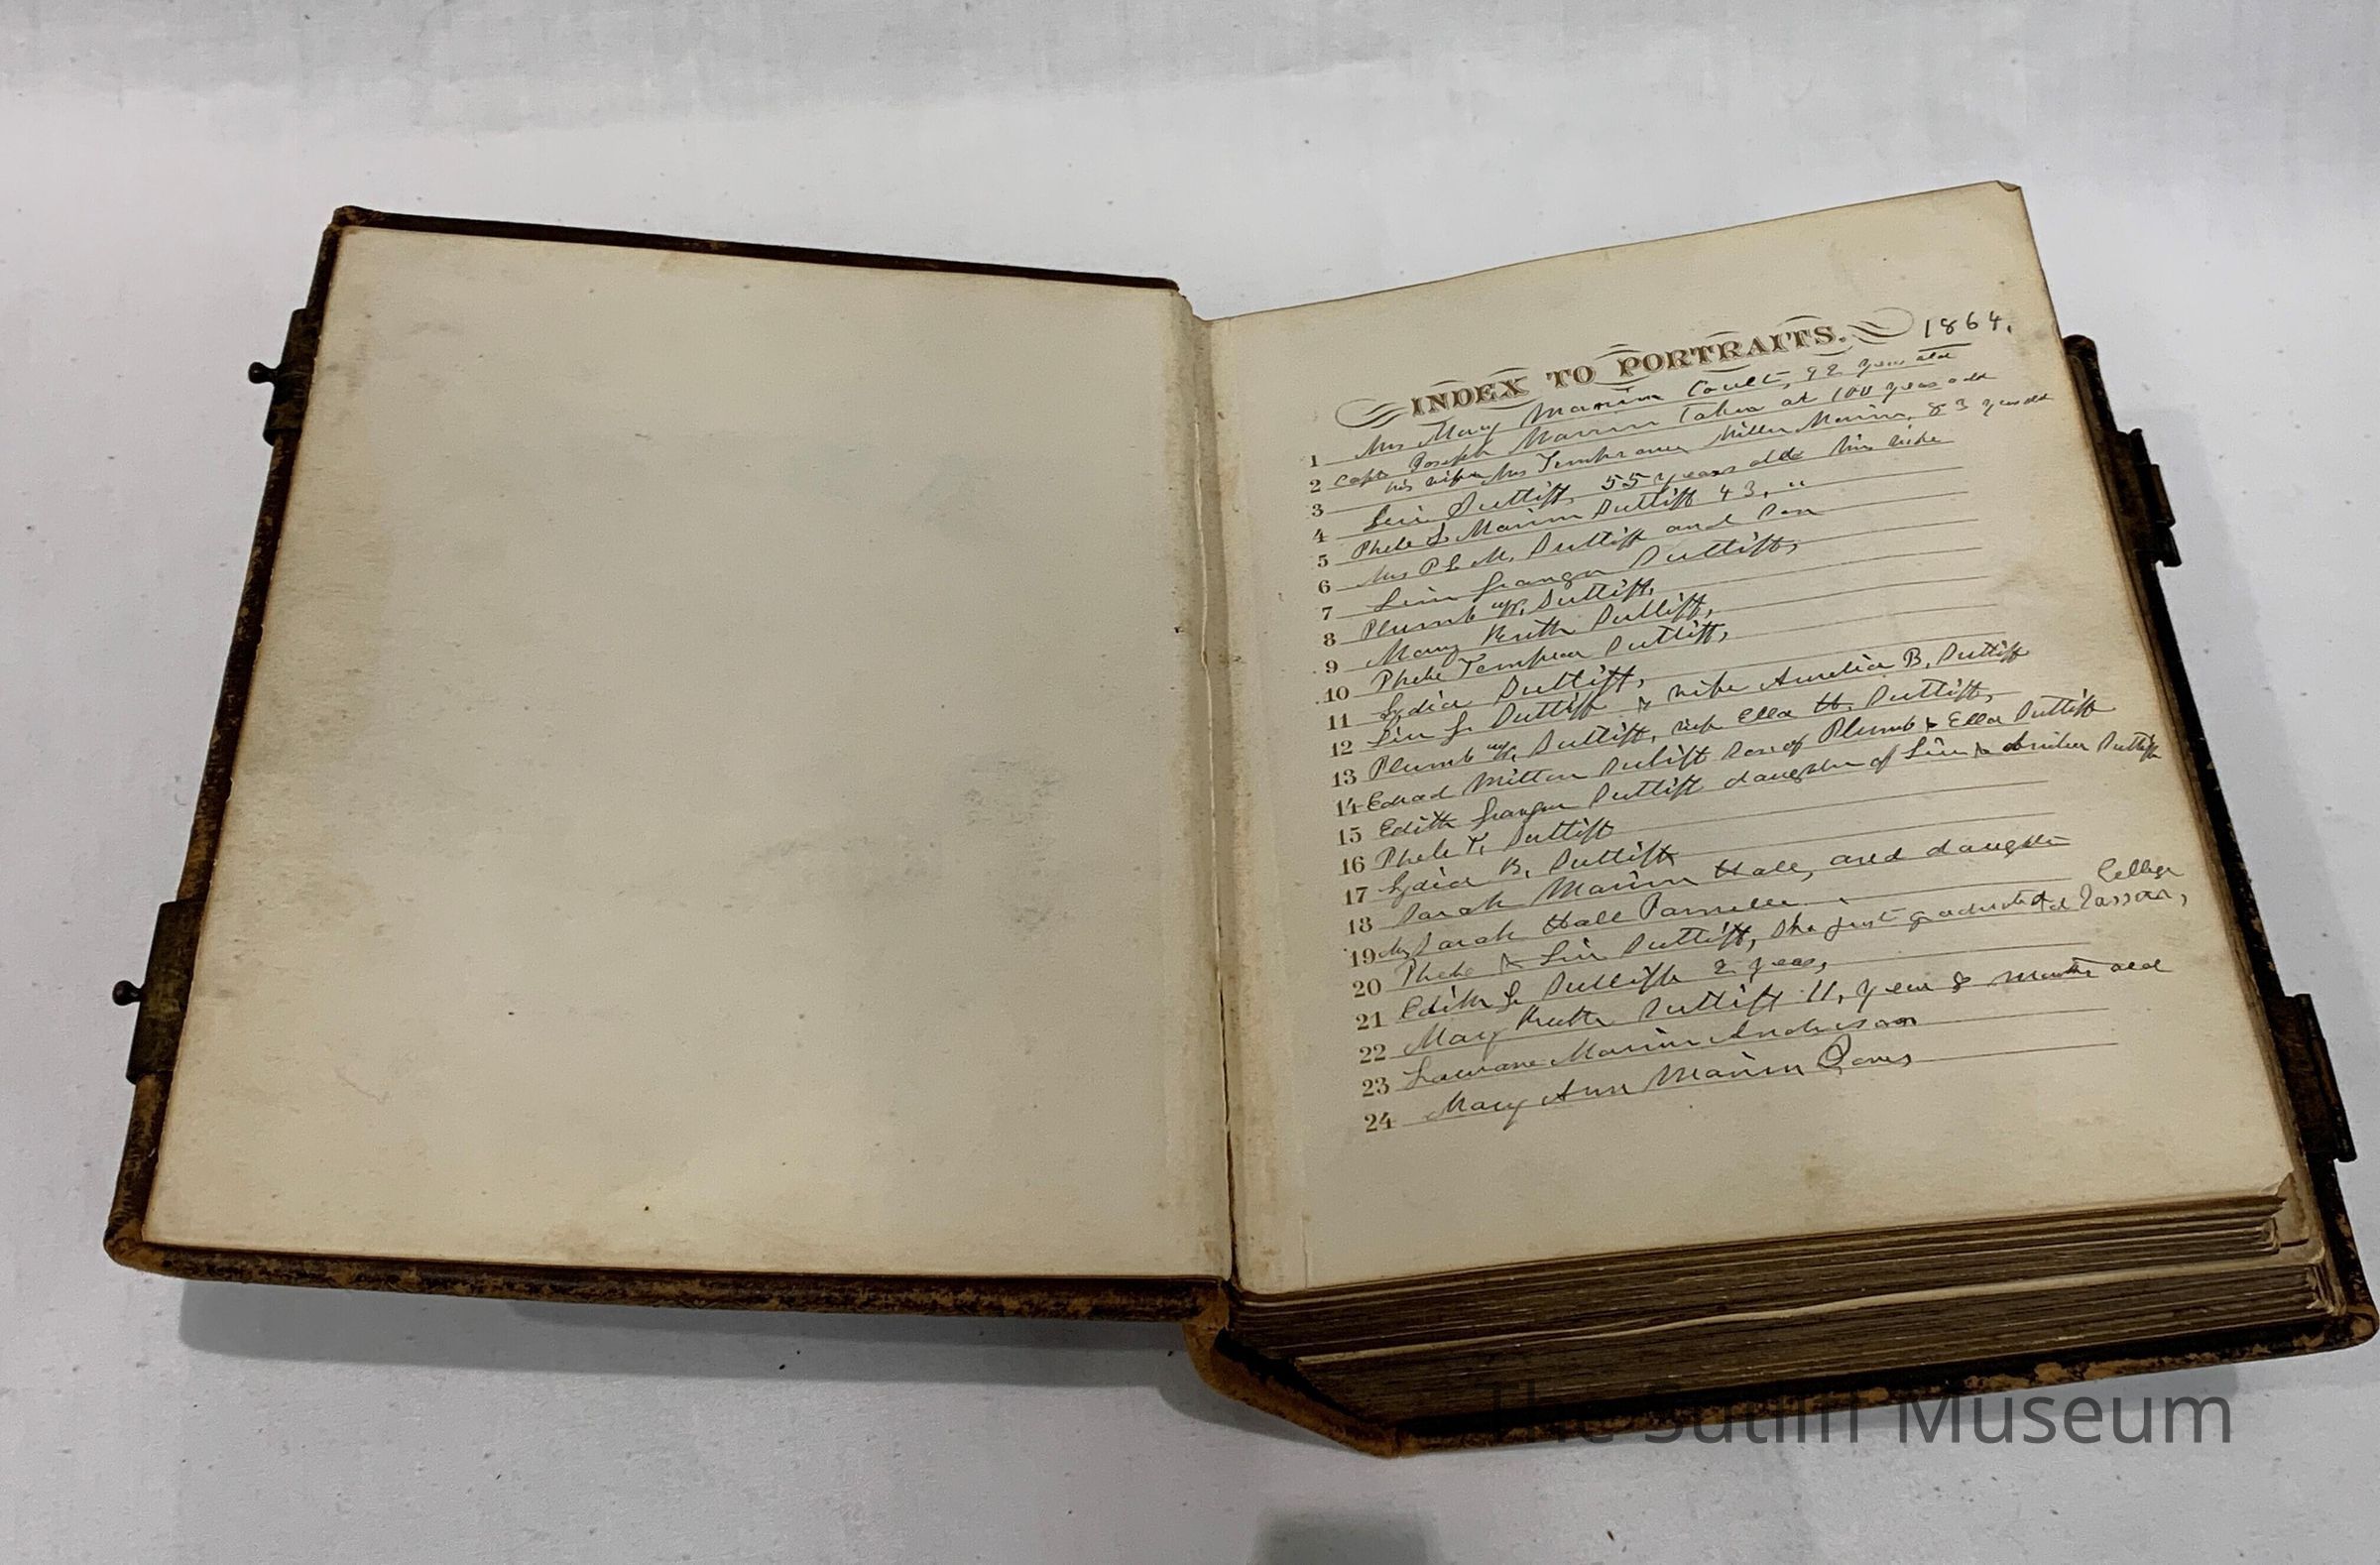 INDEX TO PORTRAITS. 1864.
1 Mrs Mary Marvin Coult, 92 years old
2 Capt Joseph Marvin Taken at 100 years old
3 his wife Mrs Temperance Miller Marvin, 83 years old
4 Levi Sutliff, 55 years old his wife
5 Phebe L Marvin Sutliff 43, "
6 Mrs P L M. Sutliff and Son
7 Levi Granger Sutliff,
8 Plumb Sutliff,
9 Mary Ruth Sutliff,
10 Phebe Sutliff,
11 Lydia Sutliff,
12 Levi G. Sutliff & wife Aurelia B. Sutliff
13 Plumb Sutliff, wife Ella H. Sutliff,
14 Edward Milton Sutliff Son of Plumb & Ella Sutliff
15 Edith Granger Sutliff daughter of Levi & Sutliff
16 Phebe T. Sutliff
17 Lydia B. Sutliff
18 Sarah Marvin Hall, and daughter
19 Mrs Sarah Hall
20 Phebe & Levi Sutliff, She just graduated at Vassar, College
21 Edith G Sutliff 2 years,
22 Mary Ruth Sutliff 11, years 8 months old
23 Marvin Anderson
24 Mary Ann Marvin
The Sutliff Museum